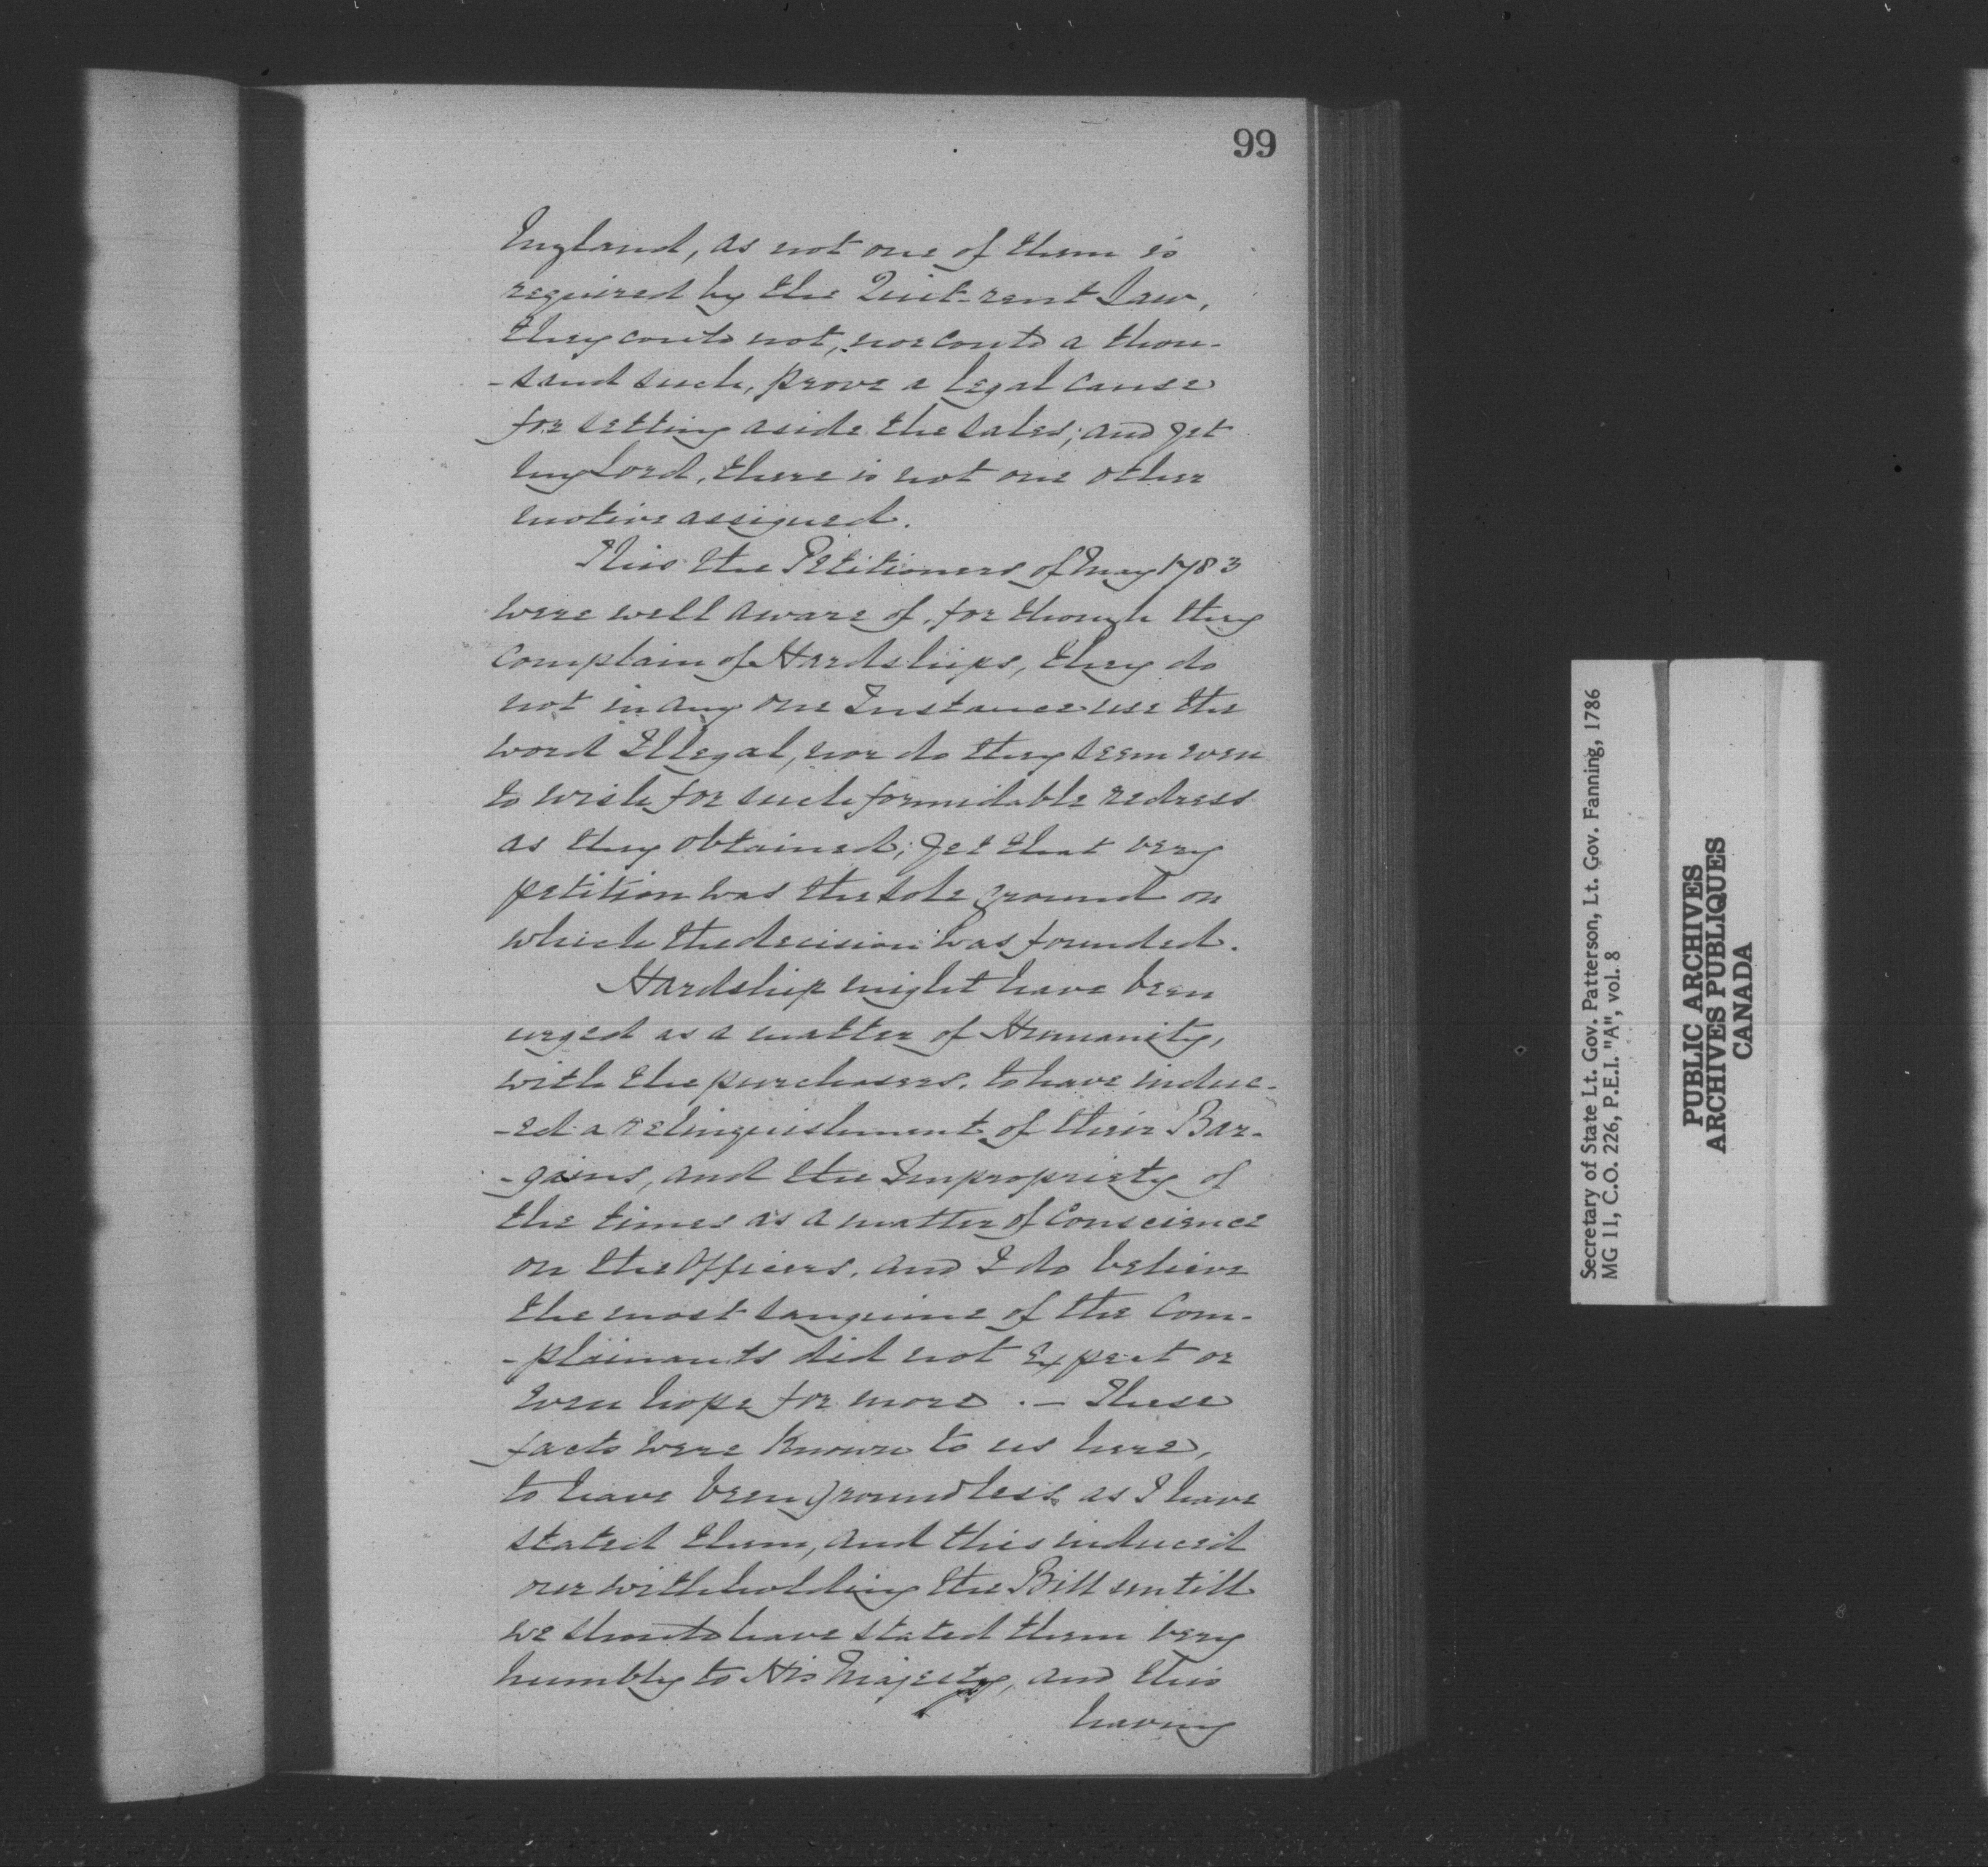 99
England, as not one of them is
required by the Quit-rent Law,
they could not, nor could a thou-
-sand such, prove a legal cause
for setting aside the sales; and yet
my Lord, there is not one other
motive assigned.
This the Petitioners of May 1783
were well aware of, for though they
Complain of Hardships, they do
not in any one Instance use the
word Illegal, nor do they seem even
to wish for such formidable redress
as they obtained; yet that very
petition was the sole ground on
which the decision was founded.
Hardship might have been
urged as a matter of Humanity,
with the purchasers, to have induc-
-ed a relinquishment of their Bar-
-gains, and the Impropriety of
the times as a matter of Conscience
on the Officers, and I do believe
the most sanguine of the Com-
-plainants did not Expect or
even hope for more. - These
facts were known to us here,
to have been groundless as I have
stated them, and this induced
our withholding the Bill untill
we should have stated them very
humbly to His Majesty, and this
having
Secretary of State Lt. Gov. Patterson, Lt. Gov. Fanning, 1786
MG 11, C.O. 226, P.E.I. "A", vol. 8
PUBLIC ARCHIVES
ARCHIVES PUBLIQUES
CANADA